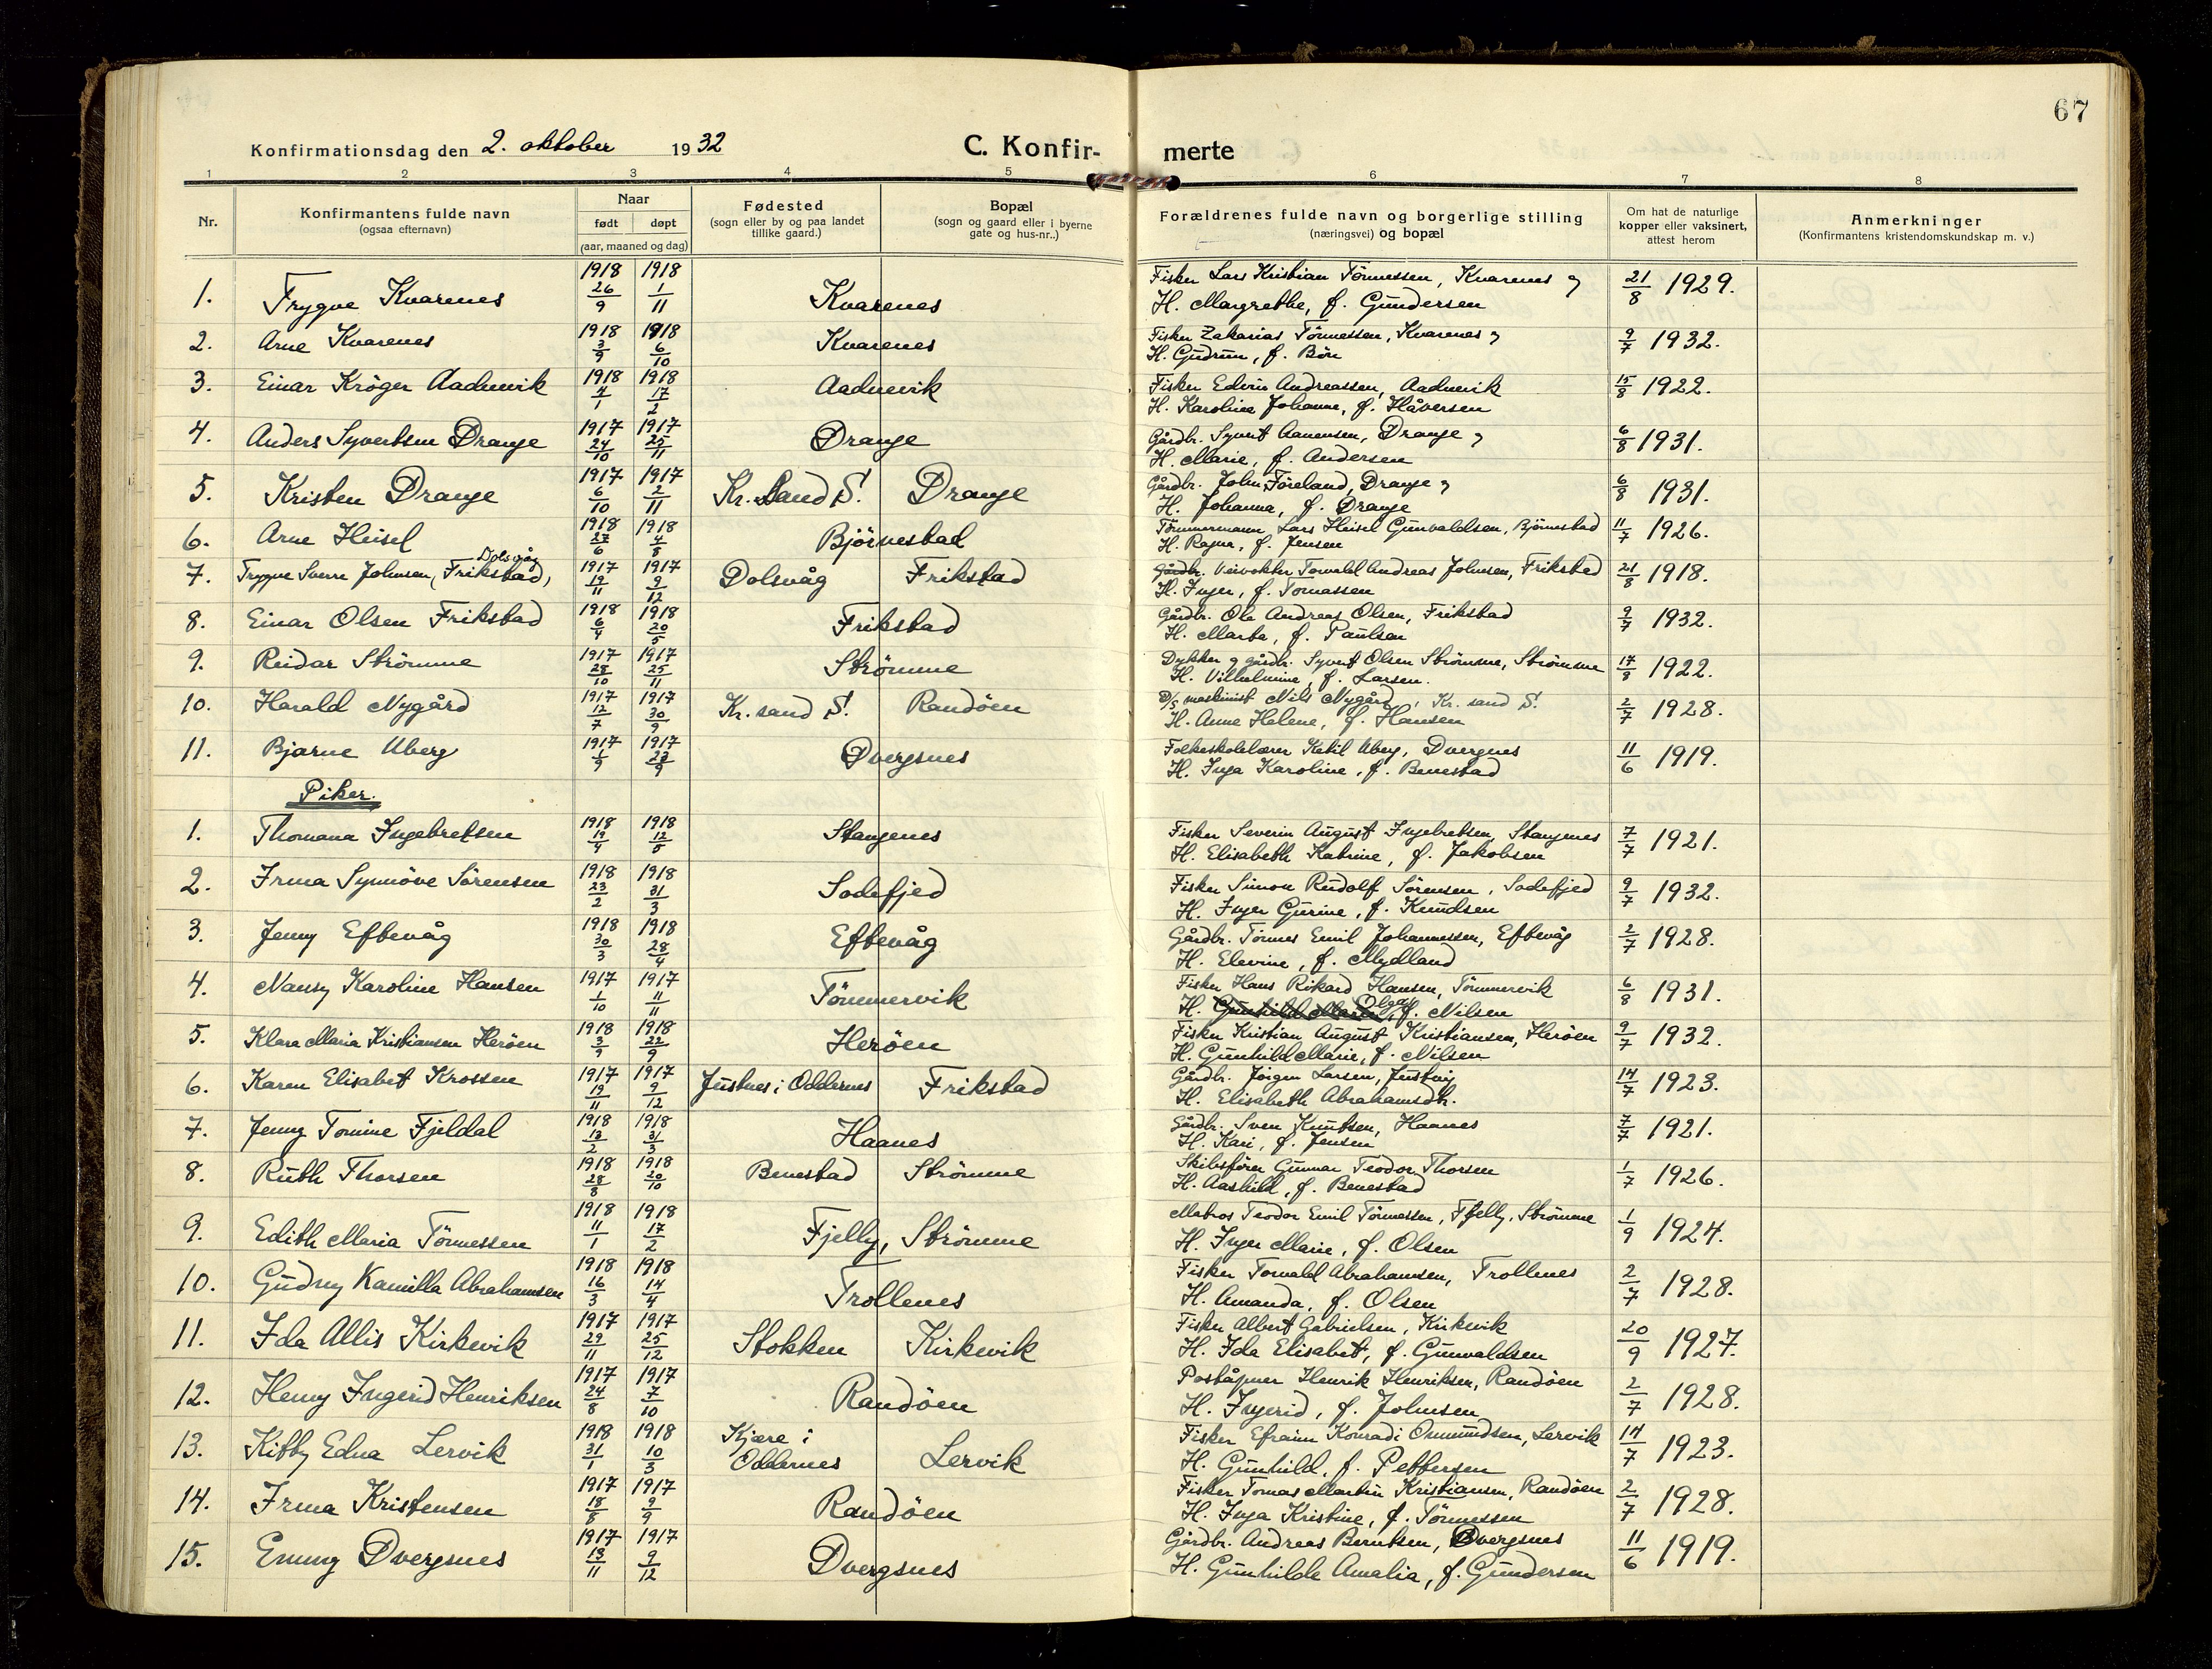 67
Konfirmationsdag den 2. oktober 1932 C. Konfir- merte
1 2 3 4 5 6 7 8
Nr. Konfirmantens fulde navn (ogsaa efternavn) Naar født døpt (aar, maaned og dag) Fødested (sogn eller by og paa landet tillike gaard.) Bopæl (sogn og gaard eller i byerne gate og hus-nr..) Forældrenes fulde navn og borgerlige stilling (næringsvei) og bopæl Om hat de naturlige kopper eller vaksinert, attest herom Anmerkninger (Konfirmantens kristendomskundskap m. v.)
1. Trygve Kvarenes 1918 26/9 1918 1/11 Kvarenes Fisker Lars Kristian Tönnessen, Kvarenes og 21/8 1929.
H. Margrethe, f. Gundersen
2. Arne Kvarenes 1918 3/9 1918 6/10 Kvarenes Fisker Zakarias Tönnessen, Kvarenes og 9/7 1932.
H. Gudrun, f. Böe
3. Einar Kröger Aadnevik 1918 4/1 1918 17/2 Aadnevik Fisker Edvin Andreassen, Aadnevik 15/8 1922.
H. Karoline Johanne, f. Håversen
4. Anders Syvertsen Drange 1917 24/10 1917 25/11 Drange Gårdbr. Syvert Aanensen, Drange og 6/8 1931.
H. Marie, f. Andersen
5. Kristen Drange 1917 6/10 1917 2/11 Kr.sand S. Drange Gårdbr. John Föreland, Drange og 6/8 1931.
H. Johanna, f. Drange
6. Arne Heisel 1918 27/6 1918 4/8 Björnestad Tömmermann Lars Heisel Gunvaldsen, Björnestad 11/7 1926.
H. Ragna, f. Jensen
7. Trygve Sverre Johnsen (Frikstad) Dolsvåg 1917 19/11 1917 9/12 Dolsvåg Frikstad Gårdbr. Veivokter Torvald Andreas Johnsen, Frikstad 21/8 1918.
H. Inger, f. Tomassen
8. Einar Olsen Frikstad 1918 6/4 1918 20/5 Frikstad Gårdbr. Ole Andreas Olsen, Frikstad 9/7 1932.
H. Marta, f. Paulsen
9. Reidar Strömme 1917 28/10 1917 25/11 Strömme Dykker og gårdbr. Syvert Olsen Strömme, Strömme 17/8 1922.
H. Vilhelmine, f. Larsen.
10. Harald Nygård 1917 12/7 1917 30/9 Kr.sand S. Randöen D/s maskinist Nils Nygård, Kr.sand S. 2/7 1928.
H. Anne Helene, f. Hansen
11. Bjarne Uberg 1917 1/9 1917 23/9 Dvergsnes Folkeskolelærer Ketil Uberg, Dvergnes 11/6 1919.
H. Inga Karoline, f. Benestad
Piker.
1. Thomana Ingebretsen 1918 19/4 1918 12/5 Stangenes Fisker Severin August Ingebretsen, Stangenes 7/7 1921.
H. Elisabeth Katrine, f. Jakobsen
2. Irma Synnöve Sörensen 1918 23/2 1918 31/3 Sodefjed Fisker Simon Rudolf Sörensen, Sodefjed 9/7 1932.
H. Inger Gurine, f. Knudsen
3. Jenny Eftevåg 1918 30/3 1918 28/4 Eftevåg Gårdbr. Tönnes Emil Johannessen, Eftevåg 2/7 1928.
H. Elevine, f. Mydland
4. Nansy Karoline Hansen 1917 1/10 1917 11/11 Tömmervik Fisker Hans Rikard Hansen, Tömmervik 6/8 1931.
H. Gunhild Marie Olga, f. Nilsen
5. Klara Maria Kristiansen Heröen 1918 3/9 1918 22/9 Heröen Fisker Kristian August Kristiansen, Heröen 9/7 1932.
H. Gunhild Marie, f. Nilsen
6. Karen Elisabet Krossen 1917 19/11 1917 9/12 Justnes i Oddernes Frikstad Gårdbr. Jörgen Larsen, 14/7 1923.
H. Elisabeth Abrahamsdtr.
7. Jenny Tomine Fjeldal 1918 13/2 1918 31/3 Haanes Gårdbr. Sven Knutsen, Haanes 7/7 1921.
H. Kari, f. Jensen
8. Ruth Thorsen 1918 28/8 1918 20/10 Benestad Strömme Skibsförer Gunnar Teodor Thorsen 1/7 1926.
H. Aashild, f. Benestad
9. Edith Maria Tönnessen 1918 11/1 1918 17/2 Fjelly, Strömme Matros Teodor Emil Tönnessen, Fjelly, Strömme 1/9 1924.
H. Inger Marie, f. Olsen
10. Gudny Kamilla Abrahamsen 1918 16/3 1918 14/4 Trollenes Fisker Torvald Abrahamsen, Trollenes 2/7 1928.
H. Amanda, f. Olsen
11. Ida Allis Kirkevik 1917 29/11 1917 25/12 Stokken Kirkevik Fisker Albert Gabrielsen, Kirkevik 20/9 1927.
H. Ida Elisabet, f. Gunvaldsen
12. Henny Ingerid Henriksen 1917 24/8 1917 7/10 Randöen Poståpner Henrik Henriksen, Randöen 2/7 1928.
H. Ingerid, f. Johnsen
13. Kitty Edna Lervik 1918 31/1 1918 10/3 Kjære i Oddernes Lervik Fisker Efraim Konradi Osmundsen, Lervik 14/7 1923.
H. Gunhild, f. Pettersen
14. Irma Kristensen 1917 18/8 1917 9/9 Randöen Fisker Tomas Martin Kristiansen, Randöen 2/7 1928.
H. Inga Kristine, f. Tönnessen
15. Emmy Dvergsnes 1917 13/11 1917 9/12 Dvergsnes Gårdbr. Andreas Berntsen, Dvergsnes 11/6 1919.
H. Gunhilde Amalia, f. Gundersen